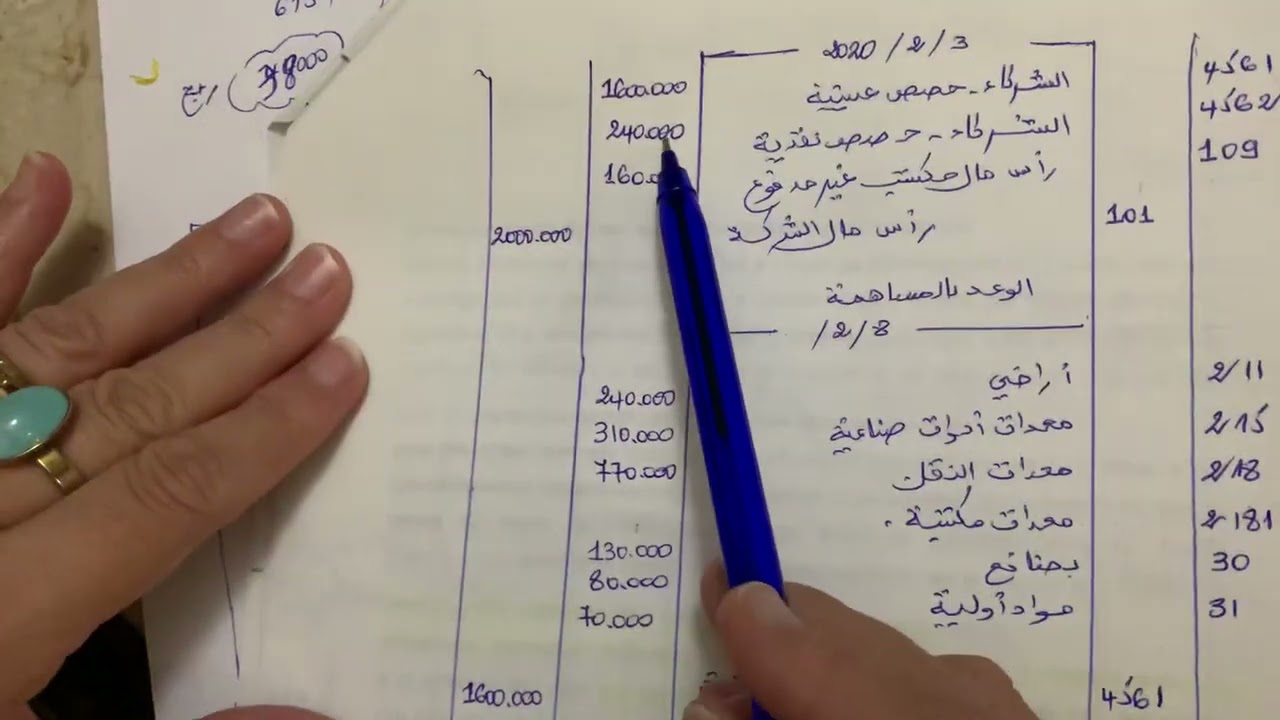 48000
2020/2/3
4561 الشركاء - حصص عينية 1600.000
4562 الشركاء - حصص نقدية 240.000
109 رأس مال مكتتب غير مدفوع 160.
101 رأس مال الشركة 2000.000
الوعد بالمساهمة
/2/8
211 أراضي 240.000
215 معدات أدوات صناعية 310.000
218 معدات النقل 770.000
2181 معدات مكتبية . 130.000
30 بضائع 80.000
31 مواد أولية 70.000
4561 1600.000